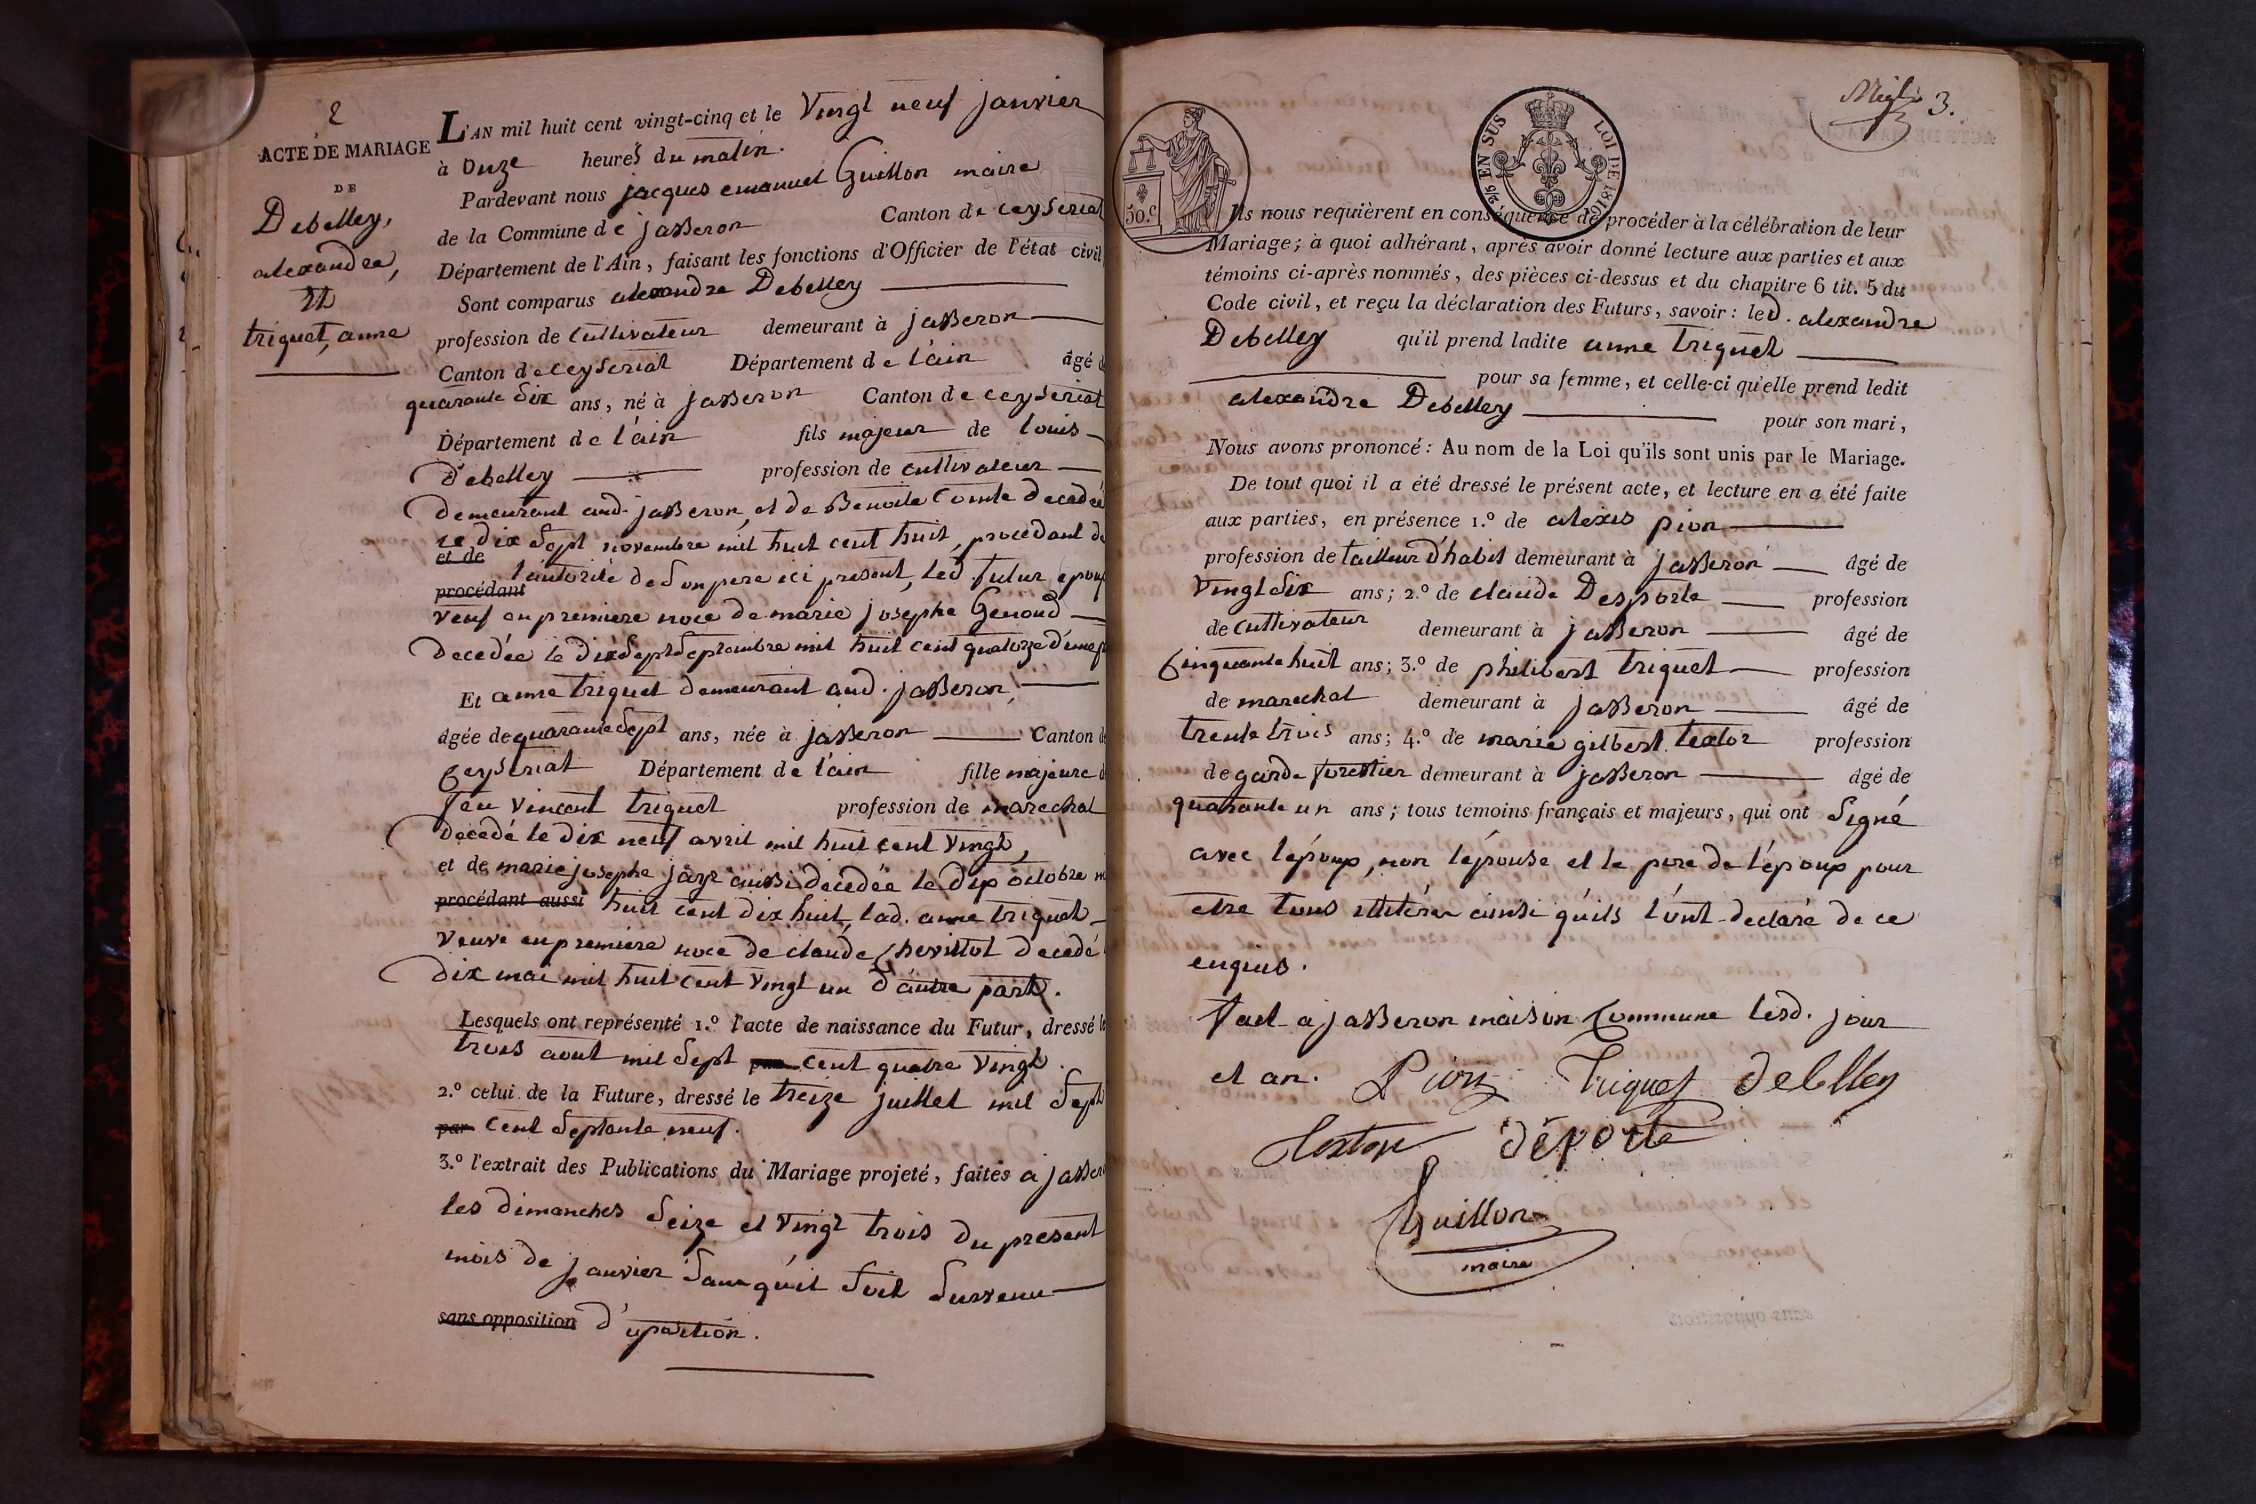 2
ACTE DE MARIAGE
DE
Debelley,
alexandre,
Et
triquet, anne
L'AN mil huit cent vingt-cinq et le Vingt neuf janvier
à Onze heures du matin.
Pardevant nous jacques emanuel Guillon maire
de la Commune de jasseron Canton de ceyseriat
Département de l'Ain, faisant les fonctions d'Officier de l'état civil
Sont comparus alexandre Debelley
profession de Cultivateur demeurant à jasseron
Canton de ceyseriat Département de l'ain âgé d
quarante Six ans, né à jasseron Canton de ceyseriat
Département de l'ain fils majeur de louis
Debelley profession de cultivateur
demeurant aud. jasseron, et de Benoite Comte decedée
le dix Sept novembre mil huit cent huit, procédant de
et de
l'autorité de Son pere ici present, led futur epoux
procédant
veuf en premiere noce de marie josephe Genoud
decedée le dix Sept Septembre mil huit cent quatorze d'une p
Et anne triquet demeurant aud. jasseron,
âgée de quarante Sept ans, née à jasseron Canton de
Ceyseriat Département de l'ain fille majeure d
feu Vincent triquet profession de marechal
decedé le dix neuf avril mil huit cent Vingt,
et de marie josephe jayr aussi decedée le dix octobre m
procédant aussi huit cent dix huit, lad. anne triquet
Veuve en premiere noce de claude Chevillot decedé
dix mai mil huit cent Vingt un d'autre part.
Lesquels ont représenté 1.º l'acte de naissance du Futur, dressé le
trois aout mil Sept cent quatre Vingt.
2.º celui de la Future, dressé le treize juillet mil Sept
par Cent Septante neuf.
3.º l'extrait des Publications du Mariage projeté, faites a jasser
les dimanches Seize et Vingt trois du présent
mois de janvier Sans qu'il Soit Survenu
sans opposition d'oposition.
3.
50.C
2/5 EN SUS LOI DE 1816
Ils nous requièrent en conséquence de procéder à la célébration de leur
Mariage; à quoi adhérant, après avoir donné lecture aux parties et aux
témoins ci-après nommés, des pièces ci-dessus et du chapitre 6 tit. 5 du
Code civil, et reçu la déclaration des Futurs, savoir: led. alexandre
Debelley qu'il prend ladite anne triquet
pour sa femme, et celle-ci qu'elle prend ledit
alexandre Debelley pour son mari,
Nous avons prononcé: Au nom de la Loi qu'ils sont unis par le Mariage.
De tout quoi il a été dressé le présent acte, et lecture en a été faite
aux parties, en présence 1.º de alexis pion
profession de tailleur d'habit demeurant à jasseron âgé de
Vingt Six ans; 2.º de claude Desporte profession
de cultivateur demeurant à jasseron âgé de
Cinquante huit ans; 3.º de philibert triquet profession
de marechal demeurant à jasseron âgé de
trente trois ans; 4.º de marie gilbert textor profession
de garde forestier demeurant à jasseron âgé de
quarante un ans; tous témoins français et majeurs, qui ont Signé
avec l'époux, non l'épouse et le pere de l'époux pour
etre tous illitérés ainsi qu'ils l'ont declaré de ce
enquis.
fait a jasseron maison Commune lesd. jour
et an. Pion Triquet debelley
Textor déporte
Guillon
maire